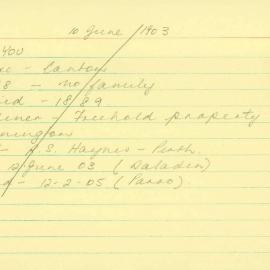 10 June / 1903
YOU
- Canton
8 - no family
ed - 1889
iner - Freehold property
nnington
- R. S. Haynes - Perth
12 June 03 (Paladin)
d - 12-2-05 (Paroo)